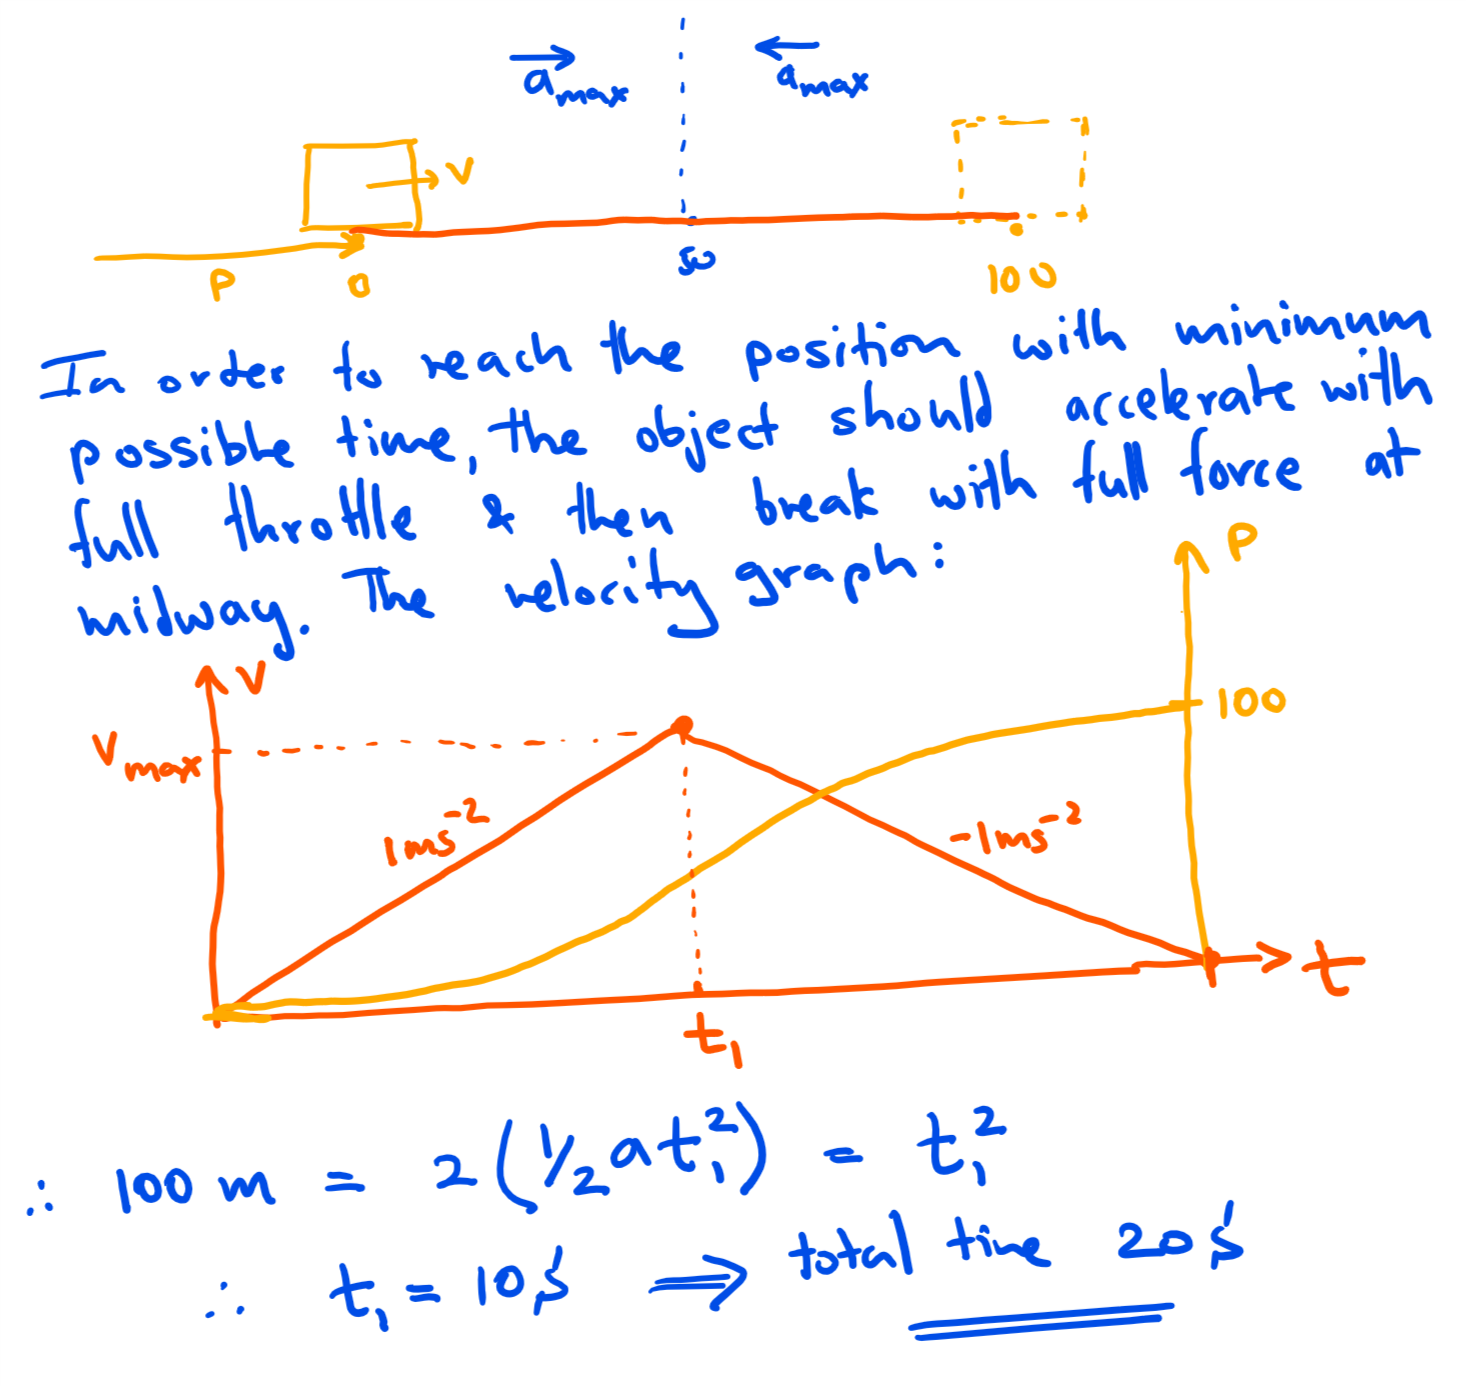 a_max a_max
V
P 0 50 100
In order to reach the position with minimum
possible time, the object should accelerate with
full throttle & then break with full force at
midway. The velocity graph:
P
V
V_max
100
1ms⁻²
-1ms⁻²
t
t₁
∴ 100 m = 2(½at₁²) = t₁²
∴ t₁ = 10s ⟹ total time 20s